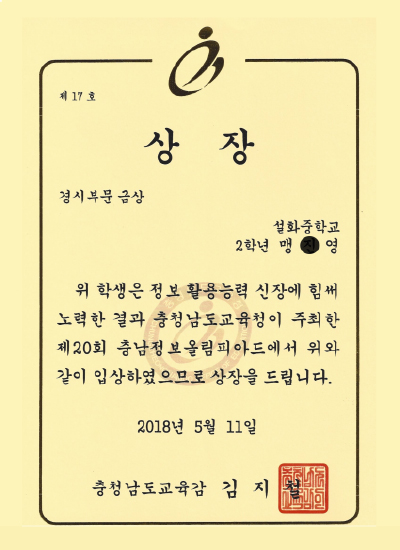 제 17 호
상 장
경시부문 금상
설화중학교
2학년 맹 영
위 학생은 정보 활용능력 신장에 힘써
노력한 결과 충청남도교육청이 주최한
제20회 충남정보올림피아드에서 위와
같이 입상하였으므로 상장을 드립니다.
2018년 5월 11일
충청남도교육감 김 지 철